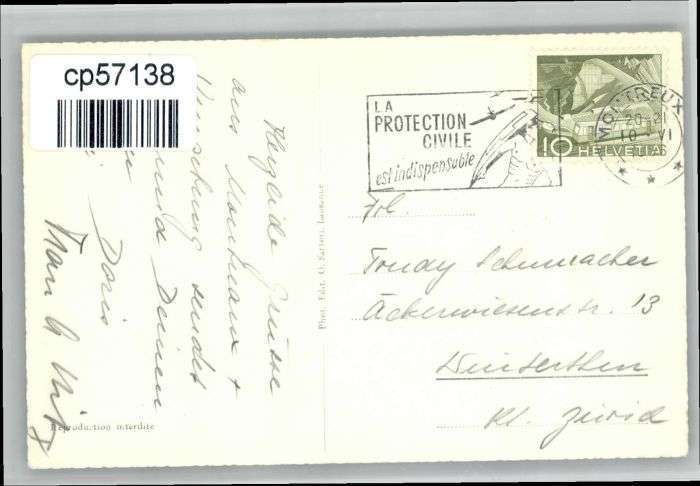 cp57138
Herzliche Grüsse
aus Montreux +
sendet
und Deinen
Doris
LA
PROTECTION
CIVILE
est indispensable
MONTREUX
20-21
10 VI
10 HELVETIA
Frl.
Trudy Schumacher
Ackerwiesenstr. 13
Winterthur
Kt. Zürich
Phot. Edit. Lausanne
Reproduction interdite